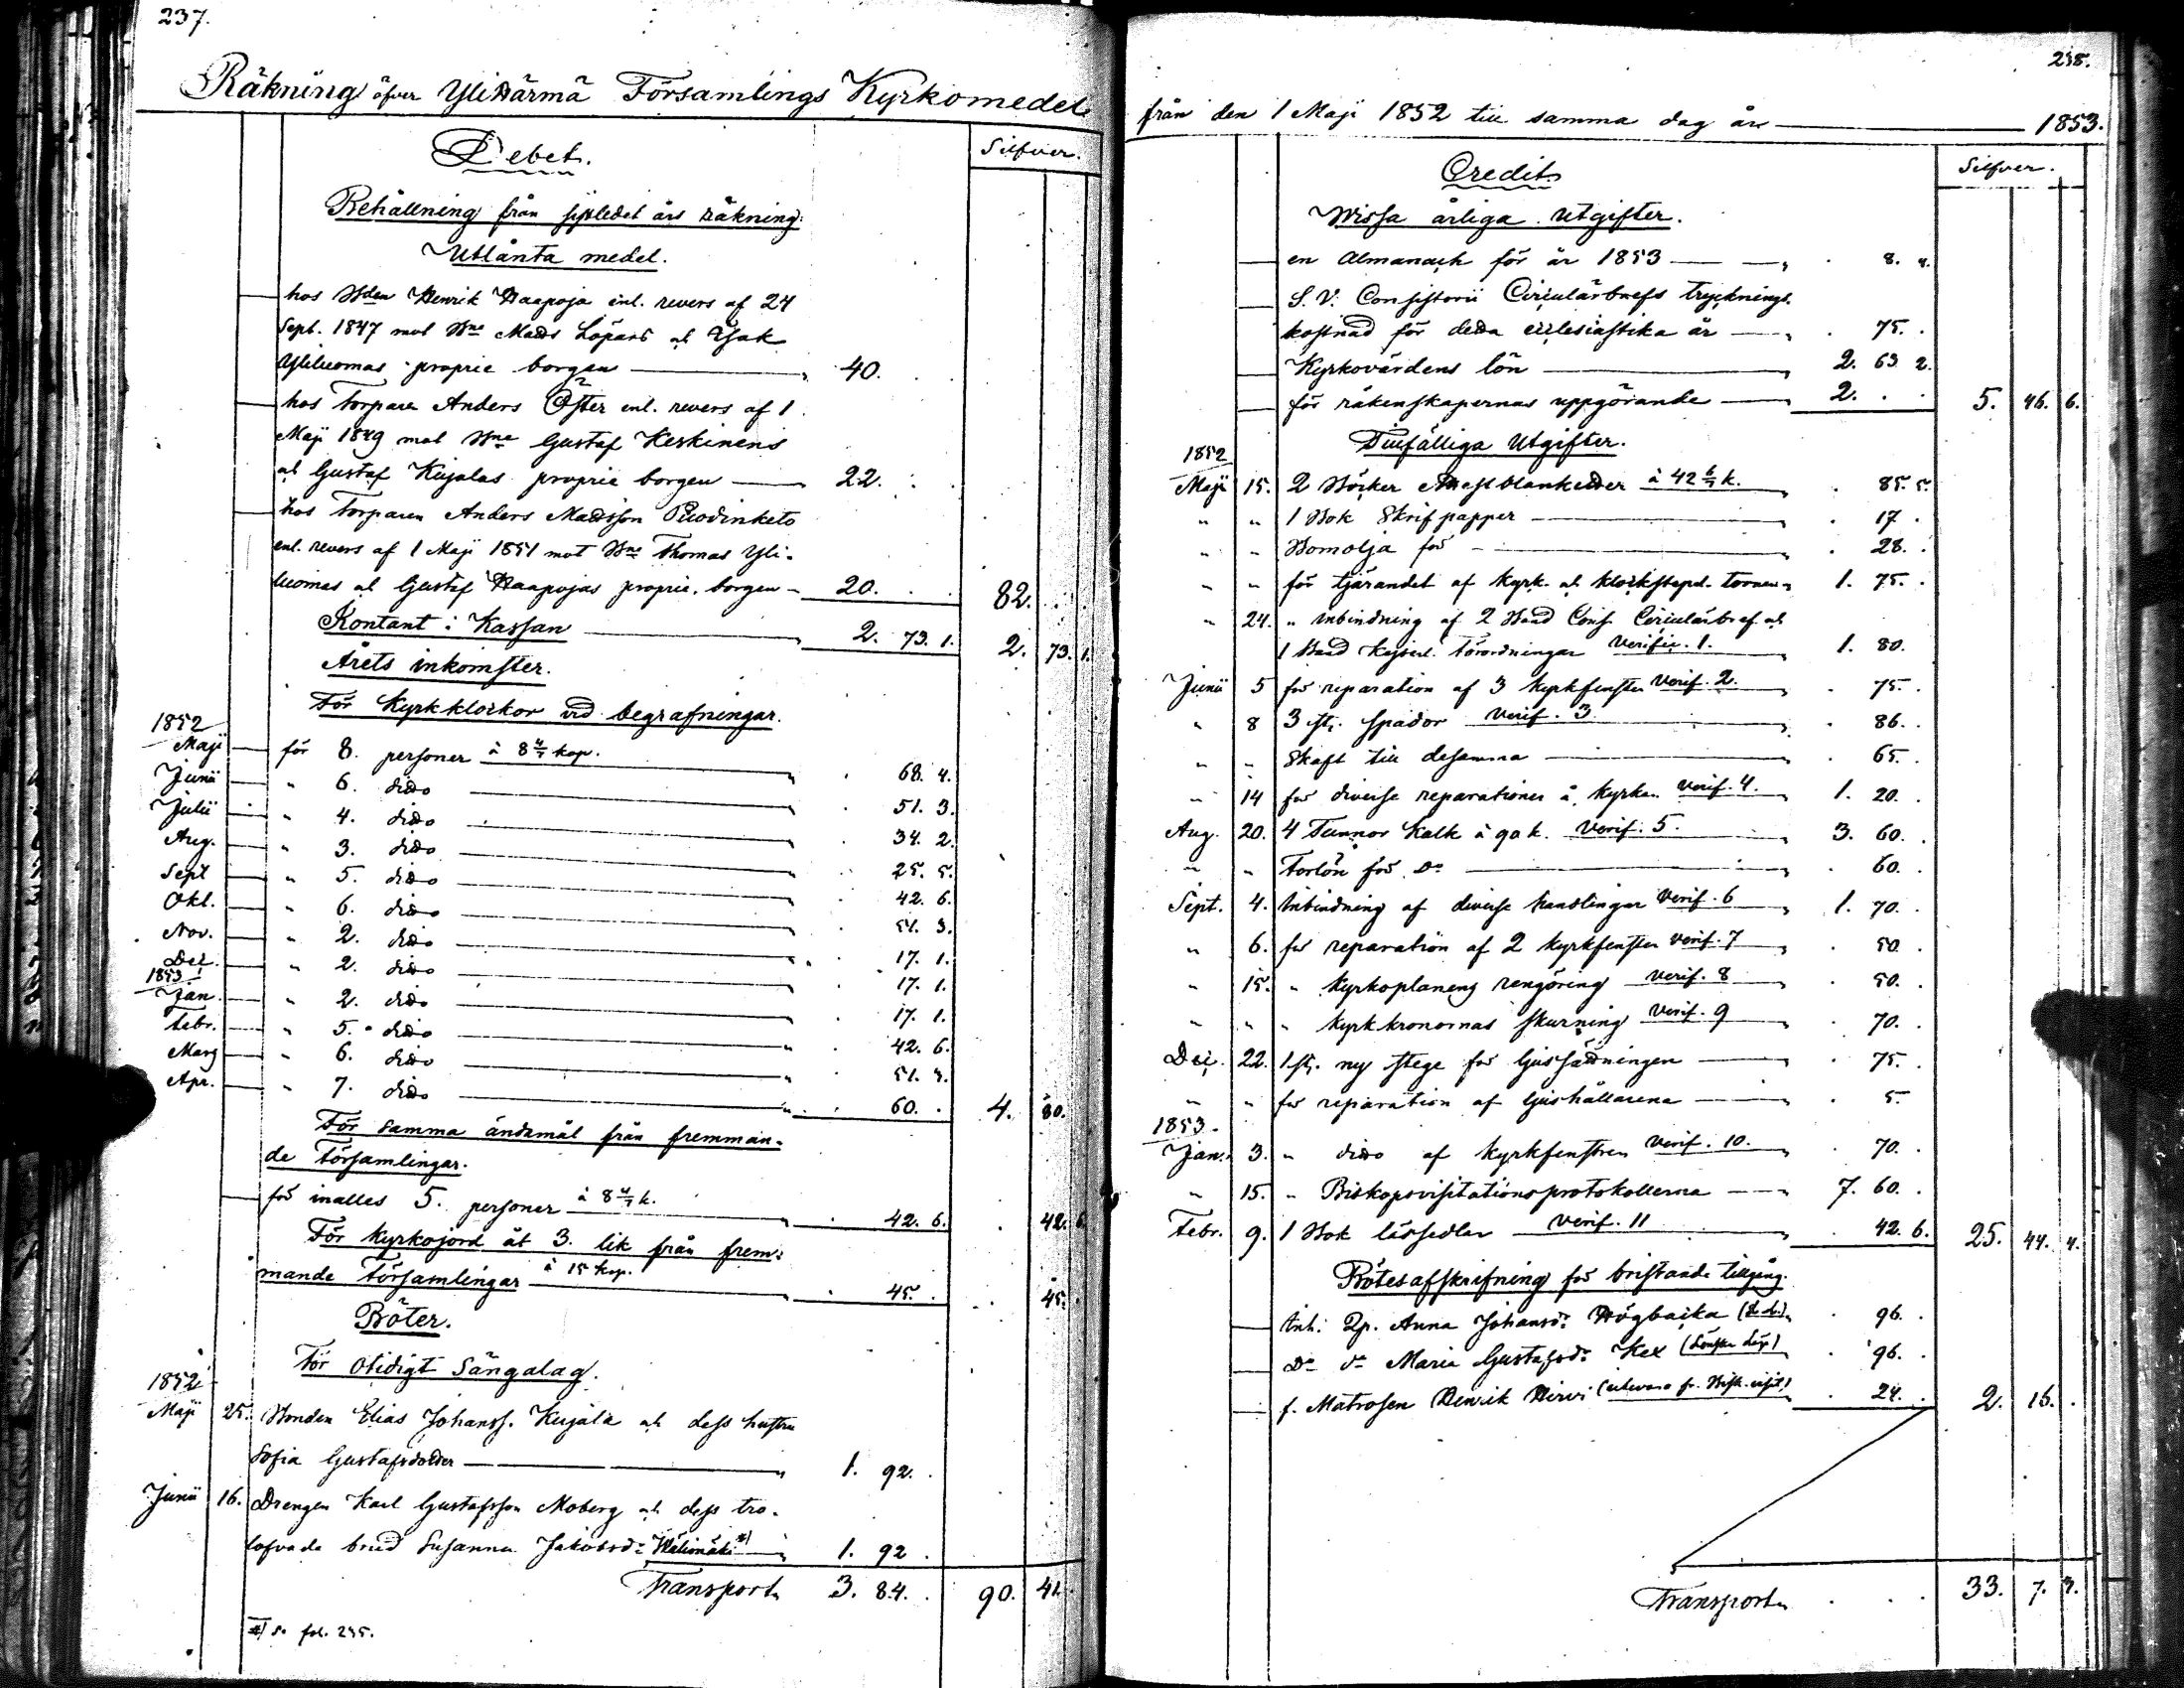 237.
Räkning öfver Ylihärmä Församlings Kyrkomedel
Debet.
Silfver.
Behållning från sistledet års räkning.
Utlånta medel.
hos Bden Henrik Haapoja enl. revers af 24
Sept. 1847 mot Bne Matts Löpars och Isak
Yliluomas proprie borgen 40.
hos Torparen Anders Öster enl. revers af 1
Maji 1849 mot Bne Gustaf Keskinens
och Gustaf Kujalas proprie borgen 22.
hos Torparen Anders Mattsson Puodinketo
enl. revers af 1 Maji 1851 mot Bne Thomas Yli-
luomas och Gustaf Haapojas proprie borgen 20. 82.
Kontant i Kassan 2. 73. 1. 2. 73. 1.
Årets inkomster.
För Kyrkklockor vid begrafningar.
1852
Maji för 8. personer à 8 4/7 kop. 68. 4.
Junii " 6. ditto 51. 3.
Julii " 4. ditto 34. 2.
Aug. " 3. ditto 25. 5.
Sept " 5. ditto 42. 6.
Okt. " 6. ditto 51. 3.
Nov. " 2. ditto 17. 1.
Dec. " 2. ditto 17. 1.
1853
Jan. " 2. ditto 17. 1.
Febr. " 5. ditto 42. 6.
Marz " 6. ditto 51. 3.
Apr. " 7. ditto 60. 4. 80.
För samma ändamål från fremman-
de Församlingar.
för inalles 5. personer à 8 4/7 k. 42. 6. 42. 6.
För kyrkojord åt 3. lik från frem-
mande Församlingar à 15 kop. 45. 45.
Böter.
För otidigt Sängalag.
1852
Maji 25. Bonden Elias Johanss. Kujala och dess hustru
Sofia Gustafsdotter 1. 92.
Junii 16. Drengen Karl Gustafsson Moberg och dess tro-
lofvade brud Susanna Jakobsd: Välimäki *) 1. 92.
Transport 3. 84. 90. 41.
*) Se fol. 235.
238.
från den 1 Maji 1852 till samma dag år 1853.
Credit
Silfver.
Wissa årliga Utgifter.
en Almanach för år 1853 8. 4.
S. V. Consistorii Circulärbrefs trycknings
kostnad för detta ecclesiastika år 75.
Kyrkovärdens lön 2. 63 2.
för räkenskapernas uppgörande 2. 5. 46. 6.
Tillfälliga Utgifter.
1852
Maji 15. 2 Böcker Attestblanketter à 42 6/7 k. 85. 5.
" " 1 Bok Skrifpapper 17.
" " Bomolja för 28.
" " för tjärandet af kyrk- och klockstapel tornen 1. 75.
" 24. " inbindning af 2 Band Cons. Circulärbref och
1 Band Kejserl. Förordningar Verific. 1. 1. 80.
Junii 5 för reparation af 3 kyrkfenster Verif. 2. 75.
" 8 3 st. spador Verif. 3 86.
" " Skaft till desamma 65.
" 14 för diverse reparationer å kyrkan Verif. 4. 1. 20.
Aug. 20. 4 Tunnor Kalk à 90 k. Verif. 5. 3. 60.
" " Forlön för Do 60.
Sept. 4. Inbindning af diverse handlingar Verif. 6 1. 70.
" 6. för reparation af 2 kyrkfenster Verif. 7 50.
" 15. " Kyrkoplanens rengöring Verif. 8 50.
" " " Kyrkkronornas skurning Verif. 9 70.
Dec. 22. 1 st. ny stege för ljussättningen 75.
" " för reparation af ljushållarena 5.
1853.
Jan. 3. " ditto af kyrkfenstren Verif. 10. 70.
" 15. " Biskopsvisitationsprotokollerna 7. 60.
Febr. 9. 1 Bok lässedlar Verif. 11 42. 6. 25. 44. 4.
Bötesafskrifning för bristande tillgång.
Inh. Qp. Anna Johansd: Högbacka 96.
Do do Maria Gustafsd: Kex 96.
f. Matrosen Henrik Hirvi 24. 2. 16.
Transport 33. 7. 3.